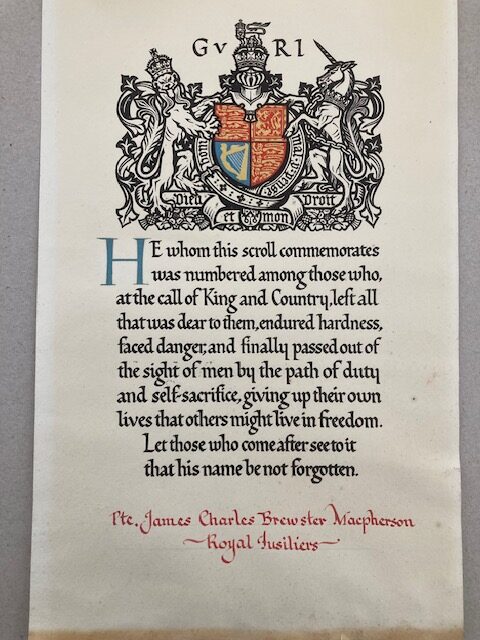 G V R I
Honi soit qui mal y pense
Dieu et mon Droit
HE whom this scroll commemorates
was numbered among those who,
at the call of King and Country, left all
that was dear to them, endured hardness,
faced danger, and finally passed out of
the sight of men by the path of duty
and self-sacrifice, giving up their own
lives that others might live in freedom.
Let those who come after see to it
that his name be not forgotten.
Pte. James Charles Brewster Macpherson
Royal Fusiliers